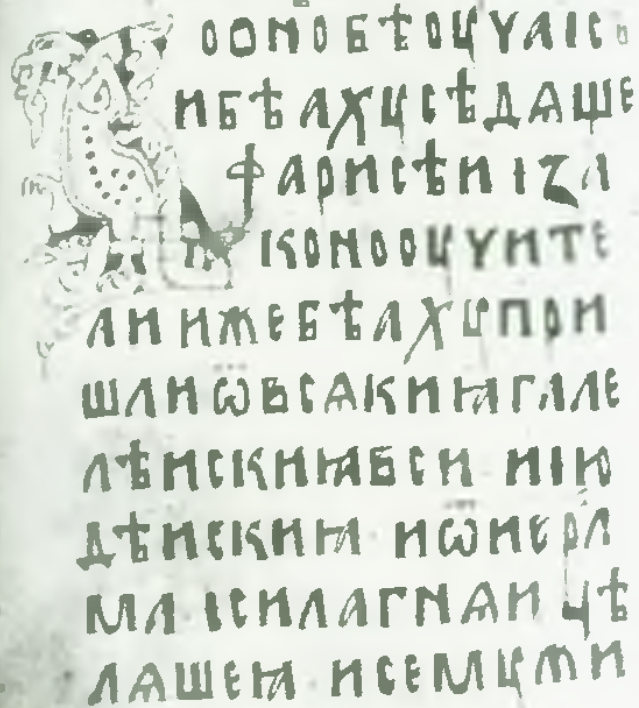 ооно бѣ оучаіс
и бѣаху сѣдѧще
фарисѣи і за
конооучите
ли иже бѣаху при
шли ѿ всѧкиꙗ гале
лѣискиꙗ вси и ію
дѣискиꙗ и ѿ иерл
ма і сила гнѧ и цѣ
лѧше ꙗ и се мужи